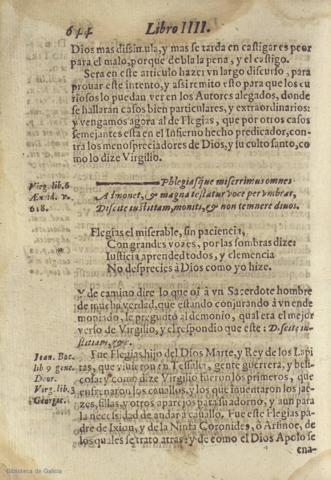 644 Libro IIII.
Dios mas dissimula, y mas se tarda en castigar es peor
para el malo, porque debla la pena, y el castigo.
Sera en este articulo hazer vn largo discurso, para
prouar este intento, y assi remito esto para los cu
riosos lo puedan ver en los Autores alegados, donde
se hallarán casos bien particulares, y extraordinarios:
y vengamos agora al de Flegias, que por otros casos
semejantes està en el Infierno hecho predicador, con-
tra los menospreciadores de Dios, y su culto santo, co
mo lo dize Virgilio.
Virg. lib. 6
Æneid. v.
618.
Phlegiasque miserrimus omnes
Admonet, & magna testatur voce per vmbras,
Discite iustitiam, moniti, & non temnere diuos.
Flegias el miserable, sin paciencia,
Con grandes vozes, por las sombras dize:
Iusticia aprended todos, y clemencia
No desprecies à Dios como yo hize.
Y de camino dire lo que oì à vn Sacerdote hombre
de mucha verdad, que estando conjurando à vn ende
moniado, le preguntò al demonio, qual era el mejor
verso de Virgilio, y el respondio que este: Discite iu-
stitiam, &c.
Ioan. Boc.
lib 9 gene.
Deor.
Virg. lib. 3
Georgic.
Fue Flegias hijo del Dios Marte, y Rey de los Lapi
tas, que viuieron en Tesalia, gente guerrera, y beli-
cosa: y como dize Virgilio fueron los primeros, que
enfrenaron los cauallos, y los que inuentaron los jae-
zes, sillas, y otros aparejos para su adorno, y aun para
la necessidad de andar à cauallo. Fue este Flegias pa-
dre de Ixion, y de la Ninfa Coronides, ò Arsinoe, de
los quales se trato atras: y de como el Dios Apolo se
ena-
Biblioteca de Galicia